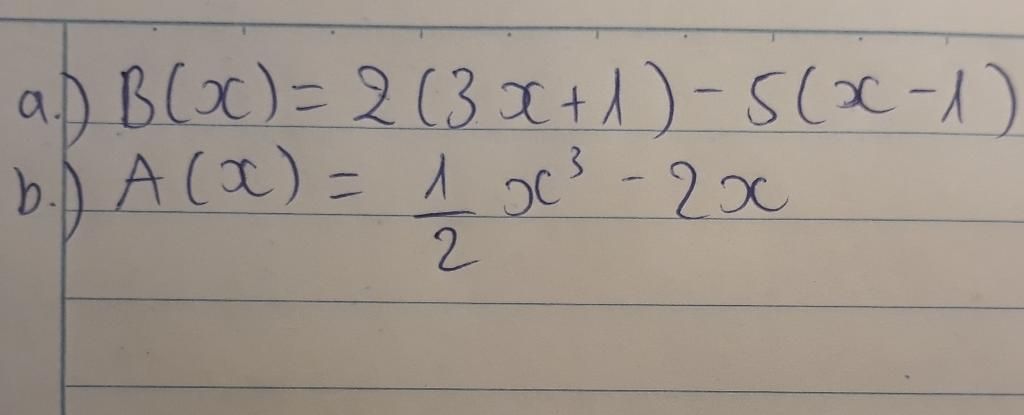 a.) B(x) = 2(3x+1) - 5(x-1)
b.) A(x) = 1/2 x³ - 2x